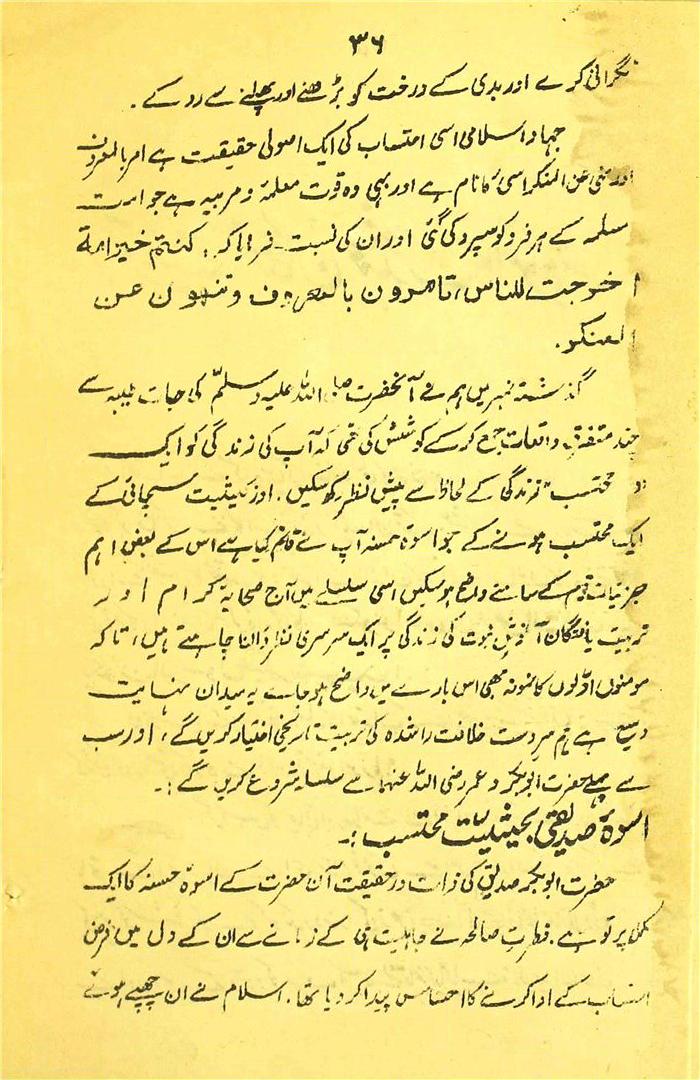 ۳۶
نگرانی کرے اور بدی کے درخت کو بڑھنے اور پھلنے سے روکے۔
جہاد اسلامی اسی احتساب کی ایک اصولی حقیقت ہے امر بالمعروف
اور نہی عن المنکر اسی کا نام ہے اور یہی وہ قوت معلمہ و مربیہ ہے جو امت
مسلمہ کے ہر فرد کو سپرد کی گئی اور ان کی نسبت فرمایا کہ: کنتم خیر امة
اخرجت للناس، تامرون بالمعروف وتنہون عن
المنکر۔
گذشتہ نمبر میں ہم نے آنحضرت صلی اللہ علیہ وسلم کی حیات طیبہ سے
چند متفرق واقعات جمع کرکے کوشش کی تھی کہ آپ کی زندگی کو ایک
"محتسب" زندگی کے لحاظ سے پیش نظر رکھ سکیں۔ اور بحیثیت سچائی کے
ایک محتسب ہونے کے جو اسوۂ حسنہ آپ نے قائم کیا ہے اس کے بعض اہم
جزئیات قوم کے سامنے واضح ہو سکیں اسی سلسلے میں آج صحابۂ کرام اور
تربیت یافتگان آغوش نبوت کی زندگی پر ایک سرسری نظر ڈالنا چاہتے ہیں، تاکہ
مومنوں اوّلوں کا نمونہ بھی اس بارے میں واضح ہو جائے یہ میدان نہایت
وسیع ہے ہم سر دست خلافت راشدہ کی ترتیب تاریخی اختیار کریں گے، اور سب
سے پہلے حضرت ابوبکر و عمر رضی اللہ عنہما سے سلسلہ شروع کریں گے:۔
اسوۂ صدیقی بحیثیت محتسب:۔
حضرت ابوبکر صدیق کی ذات درحقیقت آں حضرت کے اسوۂ حسنہ کا ایک
مکمل پرتو ہے۔ فطرت صالحہ نے جاہلیت ہی کے زمانے سے ان کے دل میں فرض
احتساب کے ادا کرنے کا احساس پیدا کر دیا تھا۔ اسلام نے ان چھپے ہوئے